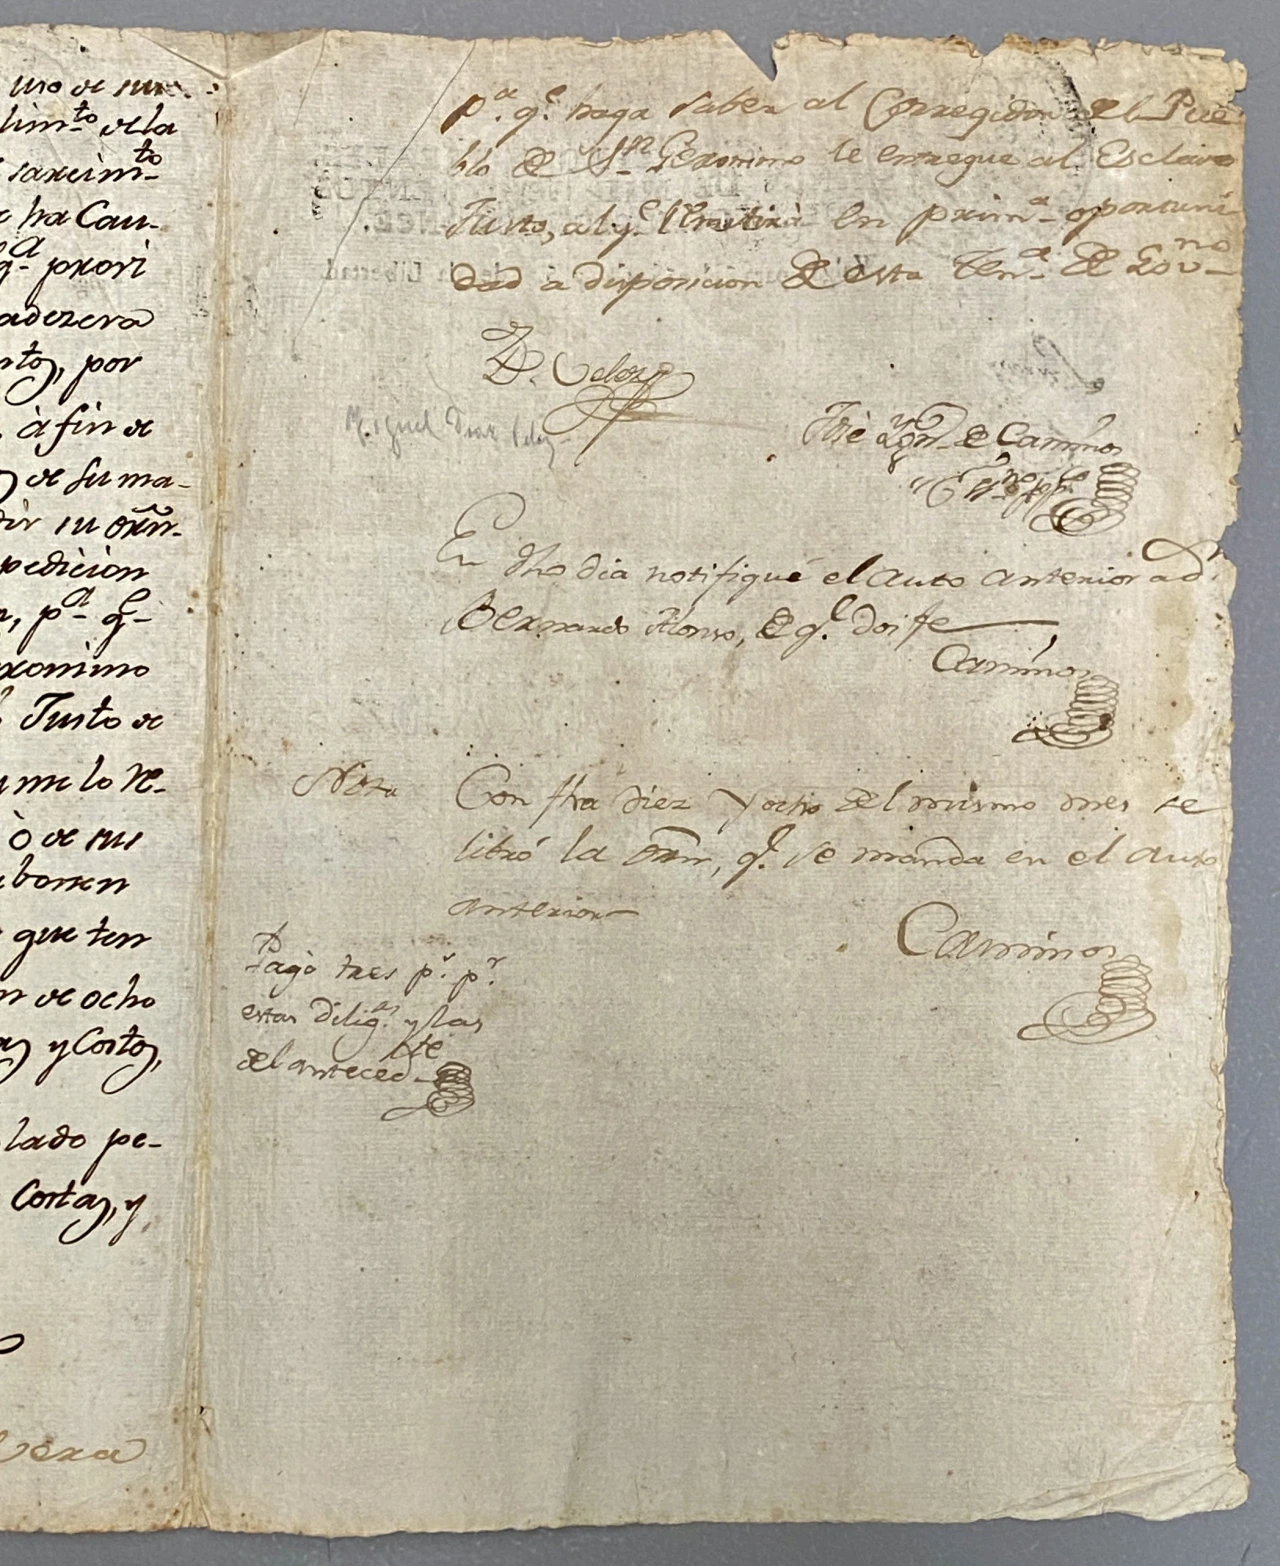 uso de sus
lim.to de la
sarcim.to
ha Cau-
q.a provi
adezera
por
à fin de
de su ma-
su orñ.
pedicion
p.a q.e
ronimo
Justo de
me lo re-
ò de sus
abonen
que ten
de ocho
y Costos,
lado pe-
Costas, y
vera
p.a q.e haga saber al Corregidor del Pue
blo de S.n Geronimo le entregue al Esclavo
Justo, al q.e remitirà en prim.a oportuni
dad a disposicion de esta Ten.a de Gov.no
D. Velez
Miguel Diaz Velez
José Ign.o de Caminos
En dho dia notifiqué el auto anterior a d.n
Bernardo Alonso, de q.e doi fe
Caminos
Nota
Con fha diez y ocho del mismo mes se
libró la orñ, q.e se manda en el auto
anterior
Caminos
Pagò tres p.s p.r
estas dilig.as y las
del anteced.te